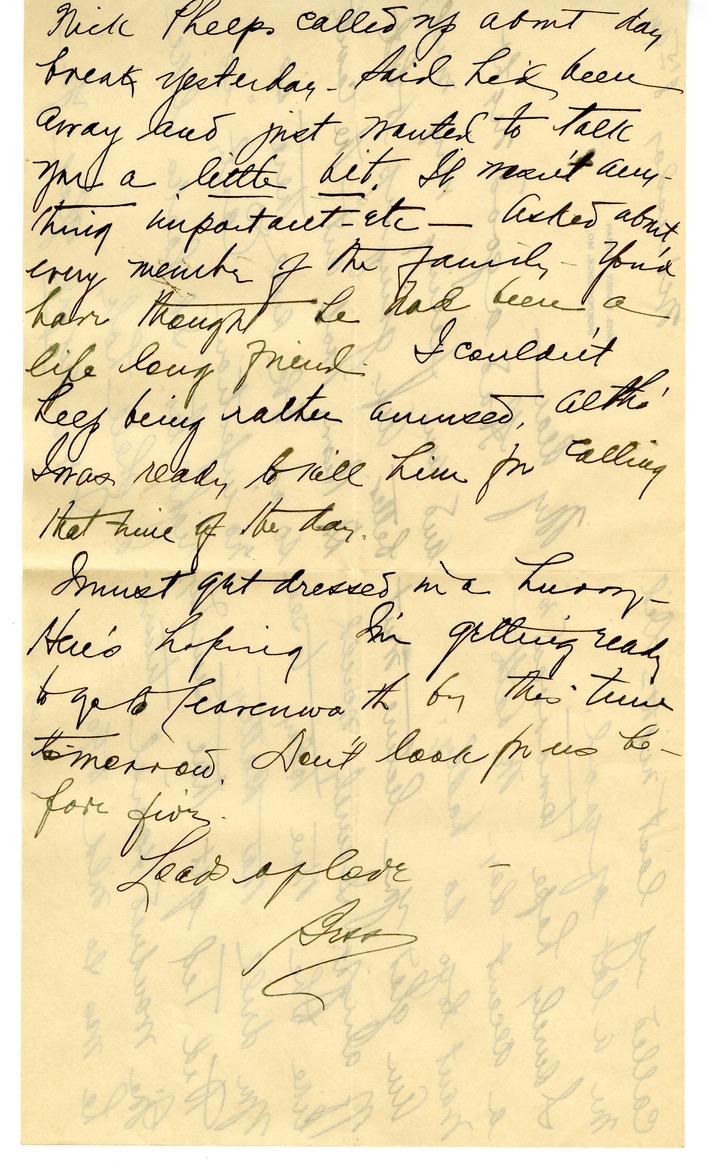 Nick Phelps called up about day
break yesterday - Said he'd been
away and just wanted to talk
you a little bit. It wasn't any-
thing important-etc — Asked about
every member of the family - You'd
have thought he had been a
life long friend. I couldn't
keep being rather amused, altho'
I was ready to kill him for calling
that time of the day.
I must get dressed in a hurry -
Here's hoping I'm getting ready
to go to Leavenwo th by this time
tomorrow. Don't look for us be-
fore five.
Loads of love -
Bess